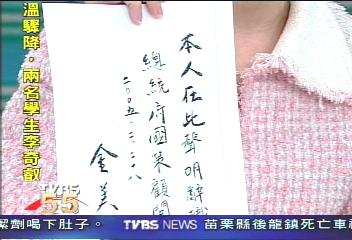 溫驟降，兩名學生李奇叡
本人在此聲明辭
總統府國策顧問
二00五.三.二八
金美
TVBS
55
潔劑喝下肚子。
TVBS NEWS
苗栗縣後龍鎮死亡車